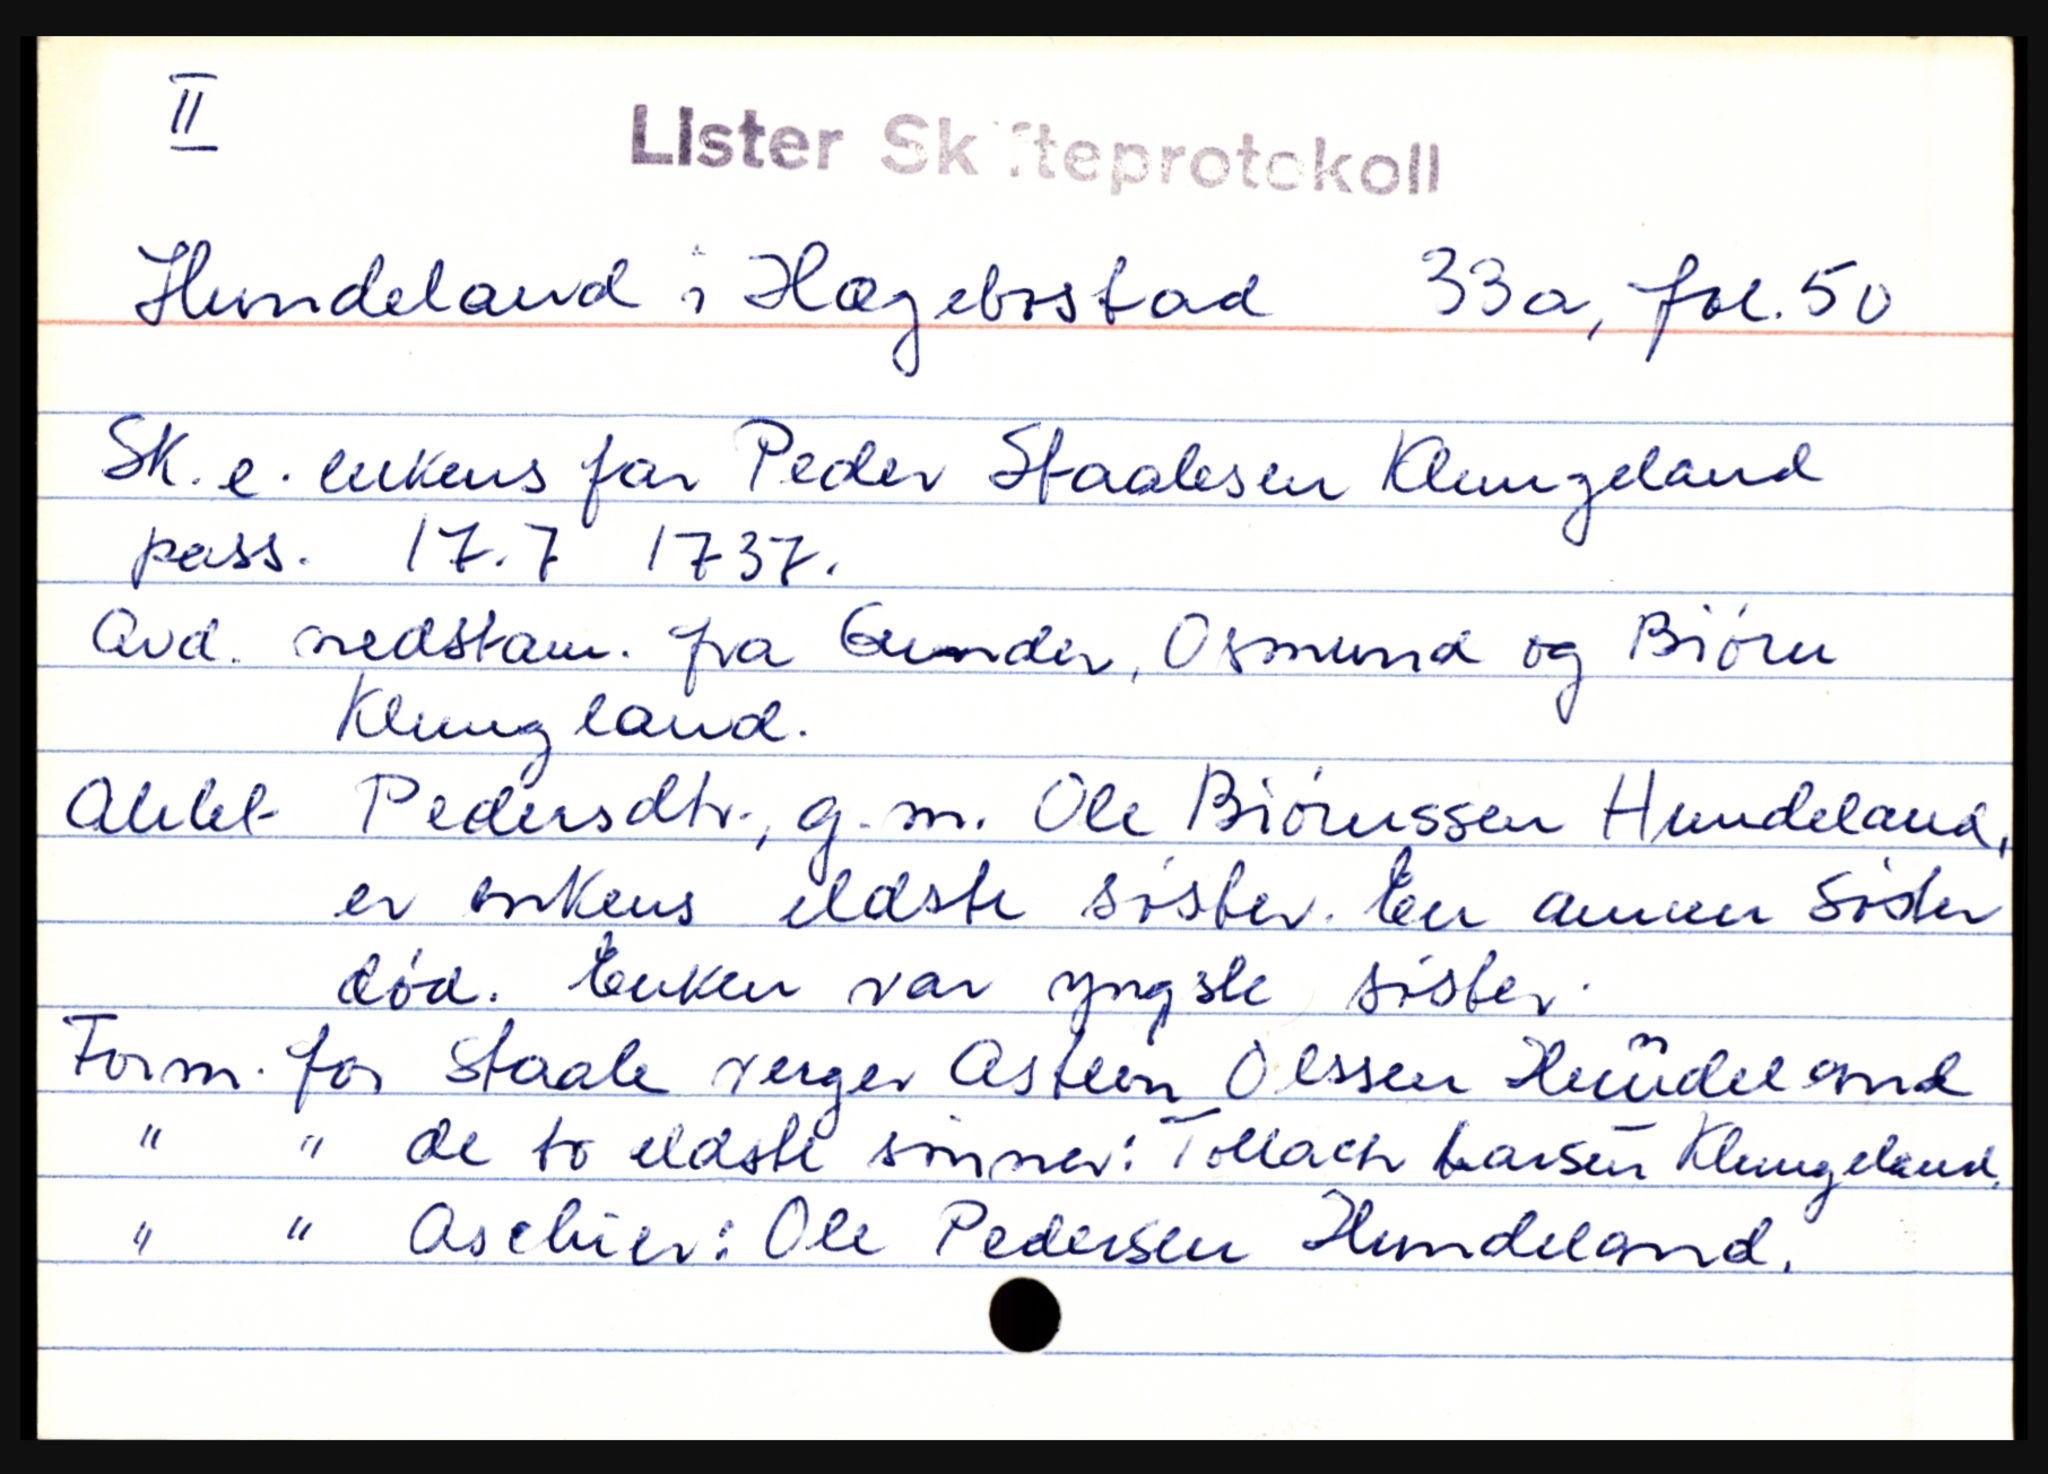 II
Lister Skifteprotokoll
Hundeland i Hægebostad 33a, fol. 50
Sk. e. enkens far Peder Staalesen Klungeland
pass. 17.7 1737.
Avd. nedstam. fra Gunder, Osmund og Biórn
Klungland.
Ahlet Pedersdtr., g.m. Ole Biórnssen Hundeland,
er enkens eldste sóster. En annen sóster
død. Enken var yngste sóster.
Form. for Staale verger Asteen Olssen Hundeland
" " de to eldste sønner: Tollach Larsen Klungeland.
" " Aschier: Ole Pedersen Hundeland.